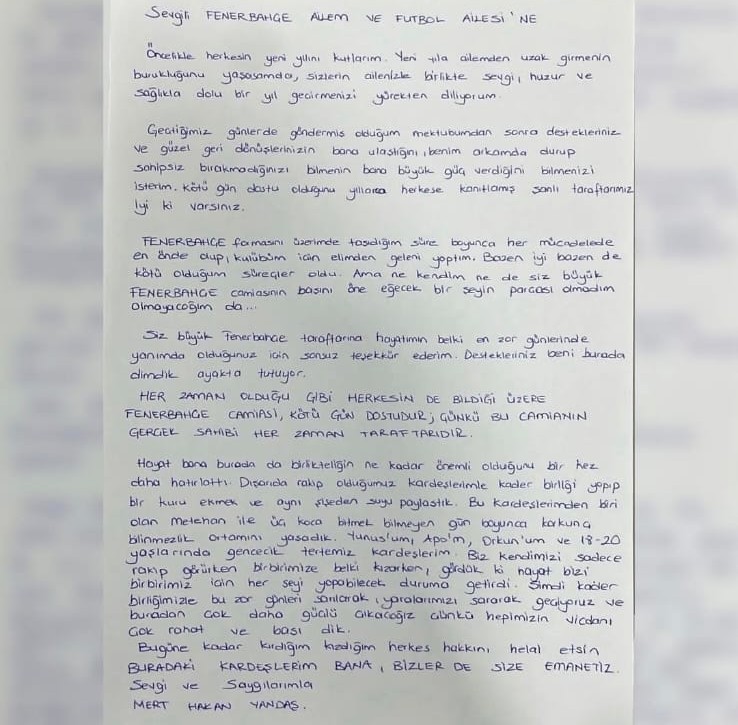 Sevgili FENERBAHÇE AİLEM VE FUTBOL AİLESİ'NE
Öncelikle herkesin yeni yılını kutlarım. Yeni yıla ailemden uzak girmenin
burukluğunu yaşasamda, sizlerin ailenizle birlikte sevgi, huzur ve
sağlıkla dolu bir yıl geçirmenizi yürekten diliyorum.
Geçtiğimiz günlerde göndermiş olduğum mektubumdan sonra destekleriniz
ve güzel geri dönüşlerinizin bana ulaştığını, benim arkamda durup
sahipsiz bırakmadığınızı bilmenin bana büyük güç verdiğini bilmenizi
isterim. Kötü gün dostu olduğunu yıllarca herkese kanıtlamış şanlı taraftarımız
iyi ki varsınız.
FENERBAHÇE formasını üzerimde taşıdığım süre boyunca her mücadelede
en önde olup, kulübüm için elimden geleni yaptım. Bazen iyi bazen de
kötü olduğum süreçler oldu. Ama ne kendim ne de siz büyük
FENERBAHÇE camiasının başını öne eğecek bir şeyin parçası olmadım
olmayacağım da...
Siz büyük Fenerbahçe taraftarına hayatımın belki en zor günlerinde
yanımda olduğunuz için sonsuz teşekkür ederim. Destekleriniz beni burada
dimdik ayakta tutuyor.
HER ZAMAN OLDUĞU GİBİ HERKESİN DE BİLDİĞİ ÜZERE
FENERBAHÇE CAMİASI, KÖTÜ GÜN DOSTUDUR; ÇÜNKÜ BU CAMİANIN
GERÇEK SAHİBİ HER ZAMAN TARAFTARIDIR.
Hayat bana burada da birlikteliğin ne kadar önemli olduğunu bir kez
daha hatırlattı. Dışarıda rakip olduğumuz kardeşlerimle kader birliği yapıp
bir kuru ekmek ve aynı şişeden suyu paylaştık. Bu kardeşlerimden biri
olan Metehan ile üç koca bitmek bilmeyen gün boyunca korkunç
bilinmezlik ortamını yaşadık. Yunus'um, Apo'm, Orkun'um ve 18-20
yaşlarında gencecik tertemiz kardeşlerim. Biz kendimizi sadece
rakip görürken birbirimize belki kızarken, gördük ki hayat bizi
birbirimiz için her şeyi yapabilecek duruma getirdi. Şimdi kader
birliğimizle bu zor günleri sarılarak, yaralarımızı sararak geçiyoruz ve
buradan çok daha güçlü çıkacağız çünkü hepimizin vicdanı
çok rahat ve başı dik.
Bugüne kadar kırdığım kızdığım herkes hakkını helal etsin
BURADAKİ KARDEŞLERİM BANA, BİZLER DE SİZE EMANETİZ.
Sevgi ve Saygılarımla
MERT HAKAN YANDAŞ.